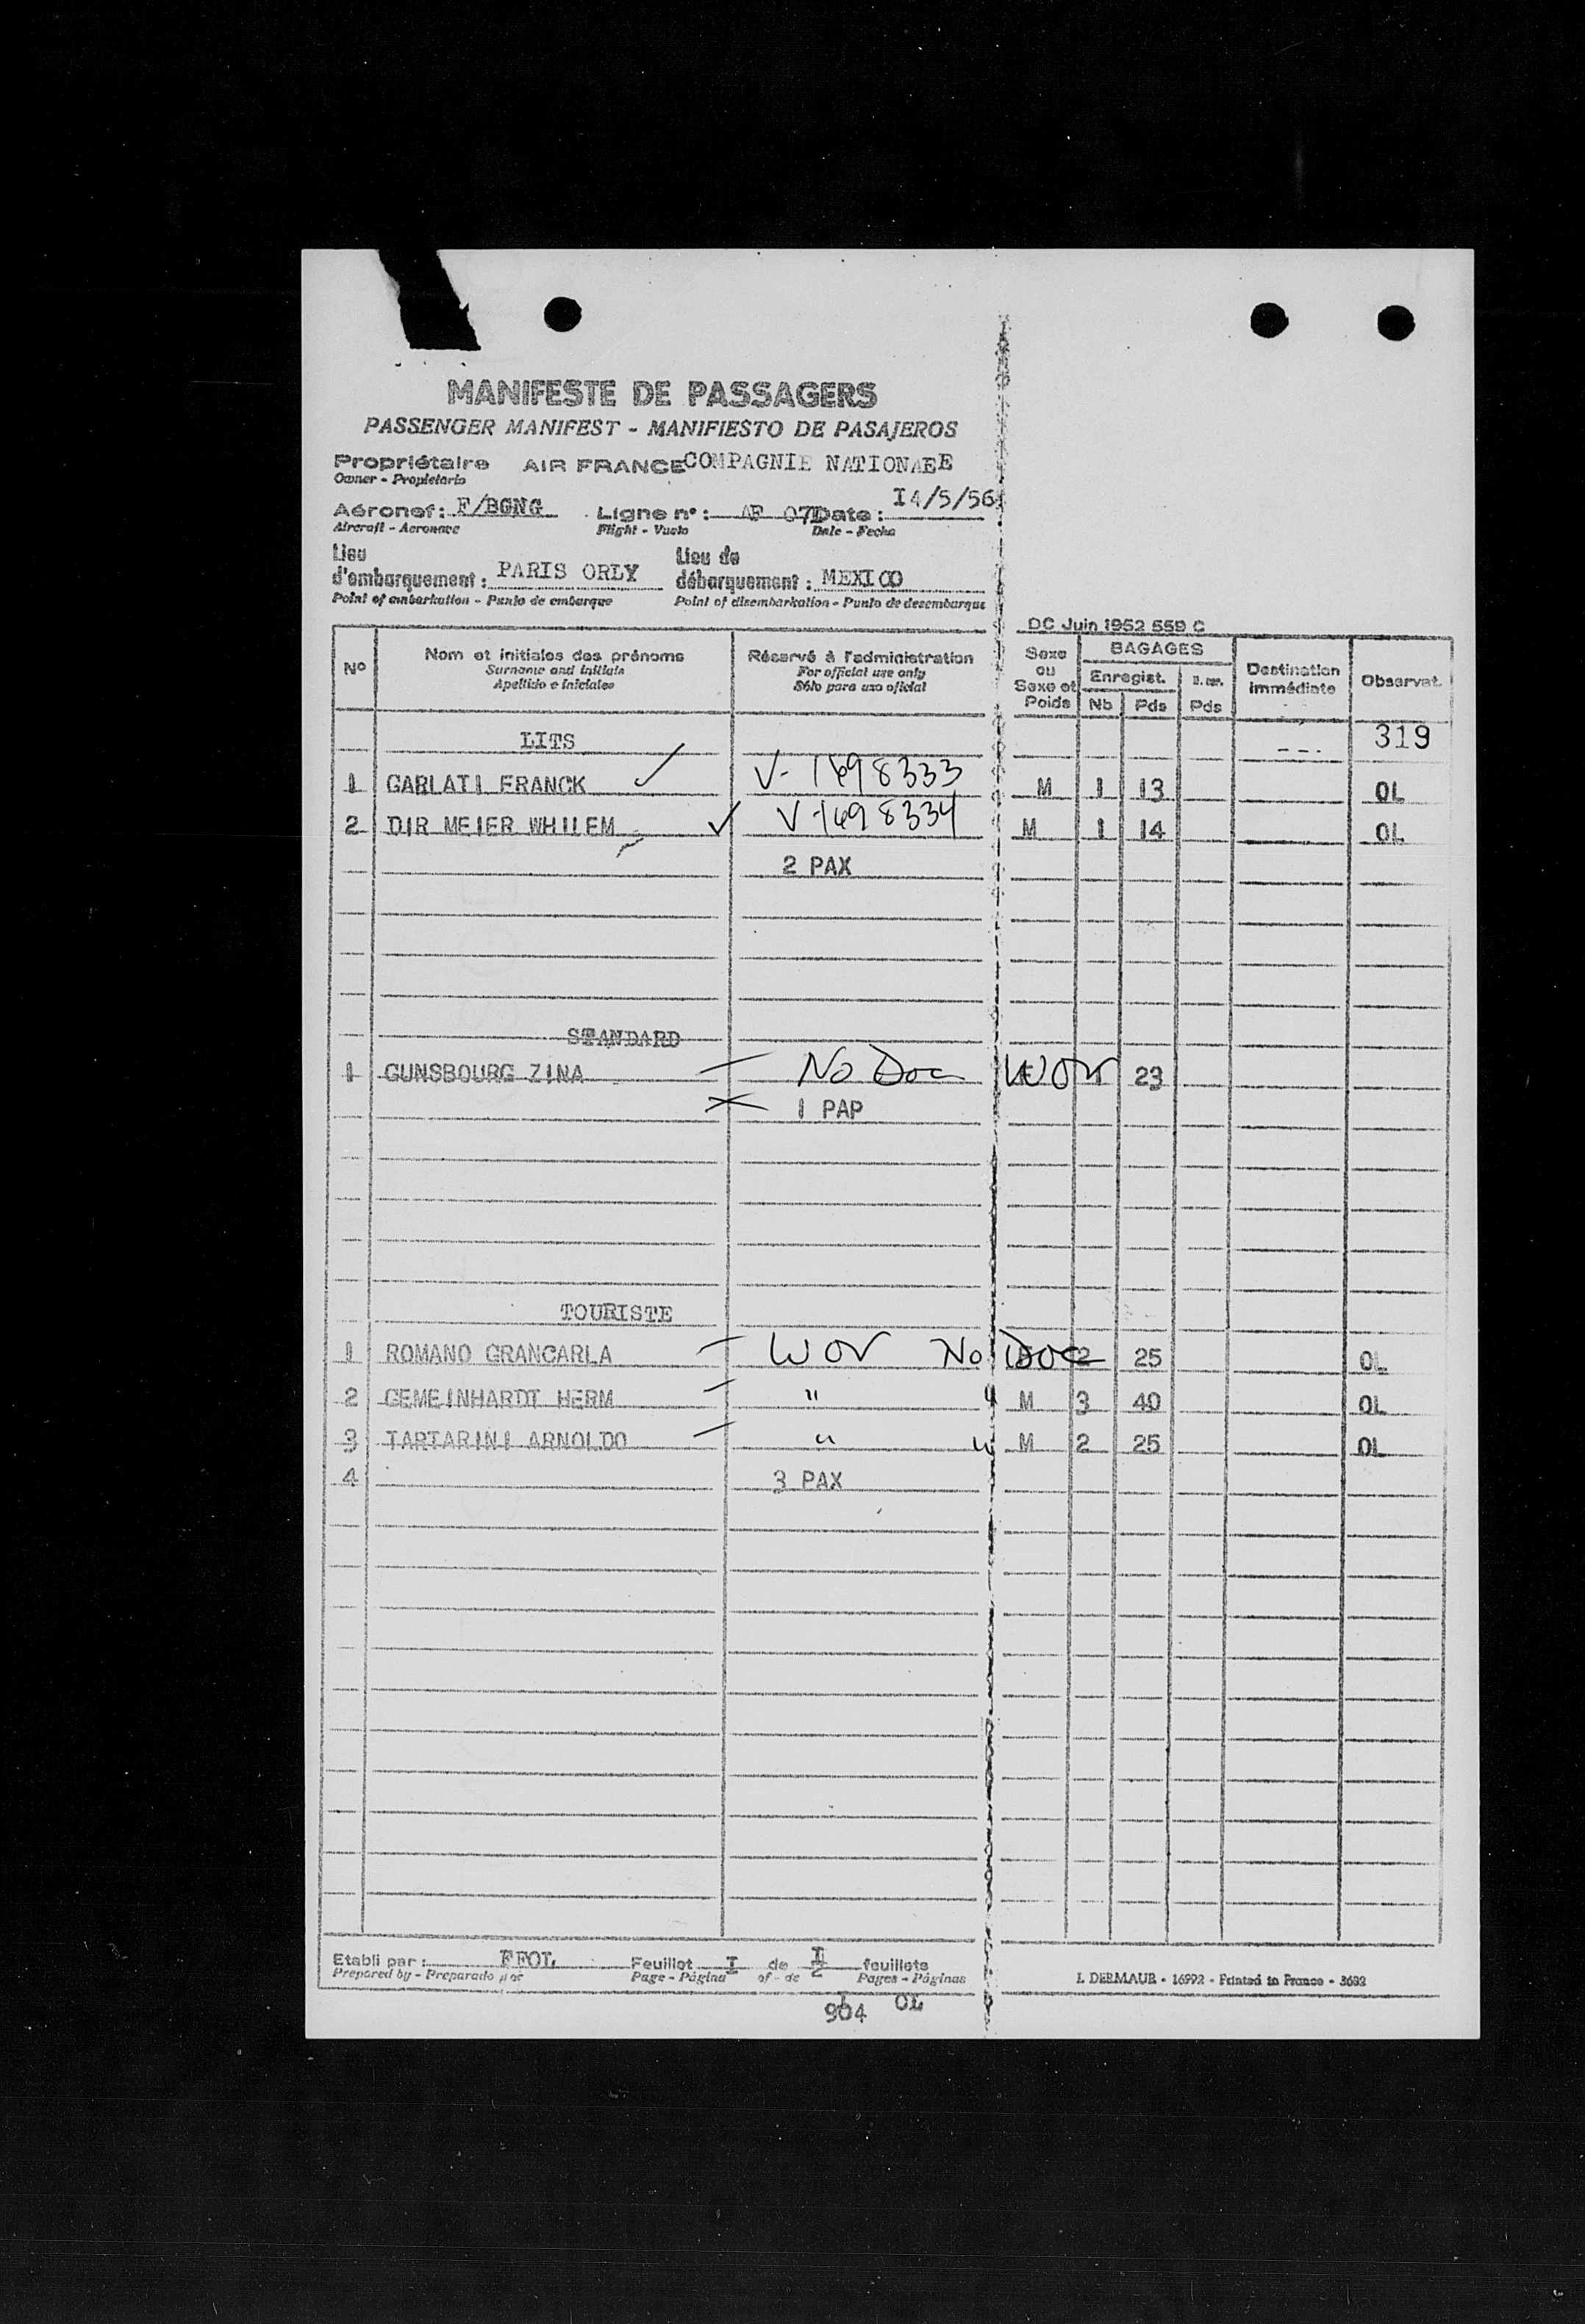 MANIFESTE DE PASSAGERS
PASSENGER MANIFEST - MANIFIESTO DE PASAJEROS
Propriétaire AIR FRANCE COMPAGNIE NATIONAEE
Owner - Propietario
I4/5/56
Aéronef: F/BGNG Ligne n°: AF 07 Date:
Aircraft - Aeronave Flight - Vuelo Date - Fecha
Lieu d'embarquement: PARIS ORLY Lieu de débarquement: MEXICO
Point of embarkation - Punto de embarque Point of disembarkation - Punto de desembarque
DC Juin 1952 559 C
N° Nom et initiales des prénoms Réservé à l'administration Sexe ou Sexe et Poids BAGAGES Destination immédiate Observat.
Surname and initials For official use only Enregist.
Apellido e iniciales Sólo para uso oficial Nb Pds Pds
LITS 319
1 GARLATI FRANCK V-1698333 M 1 13 OL
2 DIR MEIER WHILEM V-1698334 M 1 14 OL
2 PAX
STANDARD
1 GUNSBOURG ZINA No Doc WOV 23
1 PAP
TOURISTE
1 ROMANO GRANCARLA WOV No Doc 2 25 OL
2 GEMEINHARDT HERM " " M 3 40 OL
3 TARTARINI ARNOLDO " " M 2 25 OL
4 3 PAX
Etabli par: FFOL Feuillet I de feuillets
Prepared by - Preparado por Page - Página of - de Pages - Páginas
I. DERMAUR - 16992 - Printed in France - 3682
904 OL